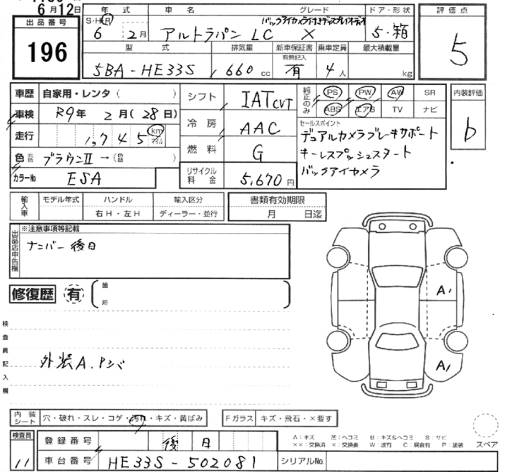 6月12日
年式 車名 グレード ドア・形状 評価点
出品番号 S・H・R 6 2月 アルトラパン LC X 5・箱
196
型式 排気量 新車保証書 乗車定員 最大積載量
5BA-HE33S 660 cc 有 4人 kg
5
車歴 自家用・レンタ( )
シフト IAT CVT
PS PW AW SR
ABS エアB TV ナビ
内装評価
b
車検 R9年 2月(28日)
冷房 AAC
セールスポイント
デュアルカメラブレーキサポート
キーレスプッシュスタート
バックアイカメラ
走行 1,745 km
燃料 G
色 ブラウンII→( )
リサイクル料金 5,670円
カラーNo ESA
輸入車 モデル年式 ハンドル 輸入区分 書類有効期限
右H・左H ディーラー・並行 月 日迄
※注意事項等記載
ナンバー後日
修復歴 有 箇所
A1
A1
検査員記入欄
外装A.Pシバ
内装シート 穴・破れ・スレ・コゲ・汚れ・キズ・黄ばみ
Fガラス キズ・飛石・×要す
スペア
検査員 11
登録番号 後日
車台番号 HE33S-502081 シリアルNo.